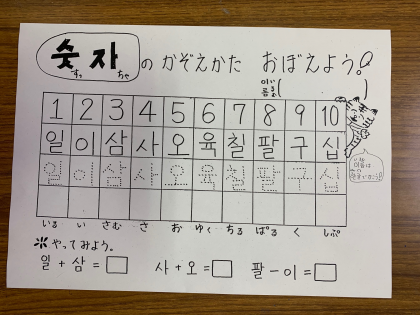 숫자 の かぞえかた おぼえよう。
すっ ちゃ
이름 (      )
1 2 3 4 5 6 7 8 9 10
일 이 삼 사 오 육 칠 팔 구 십
일 이 삼 사 오 육 칠 팔 구 십
いる い さむ さ お ゆく ちる ぱる く しぷ
※やってみよう。
일 + 삼 = □ 사 + 오 = □ 팔 - 이 = □